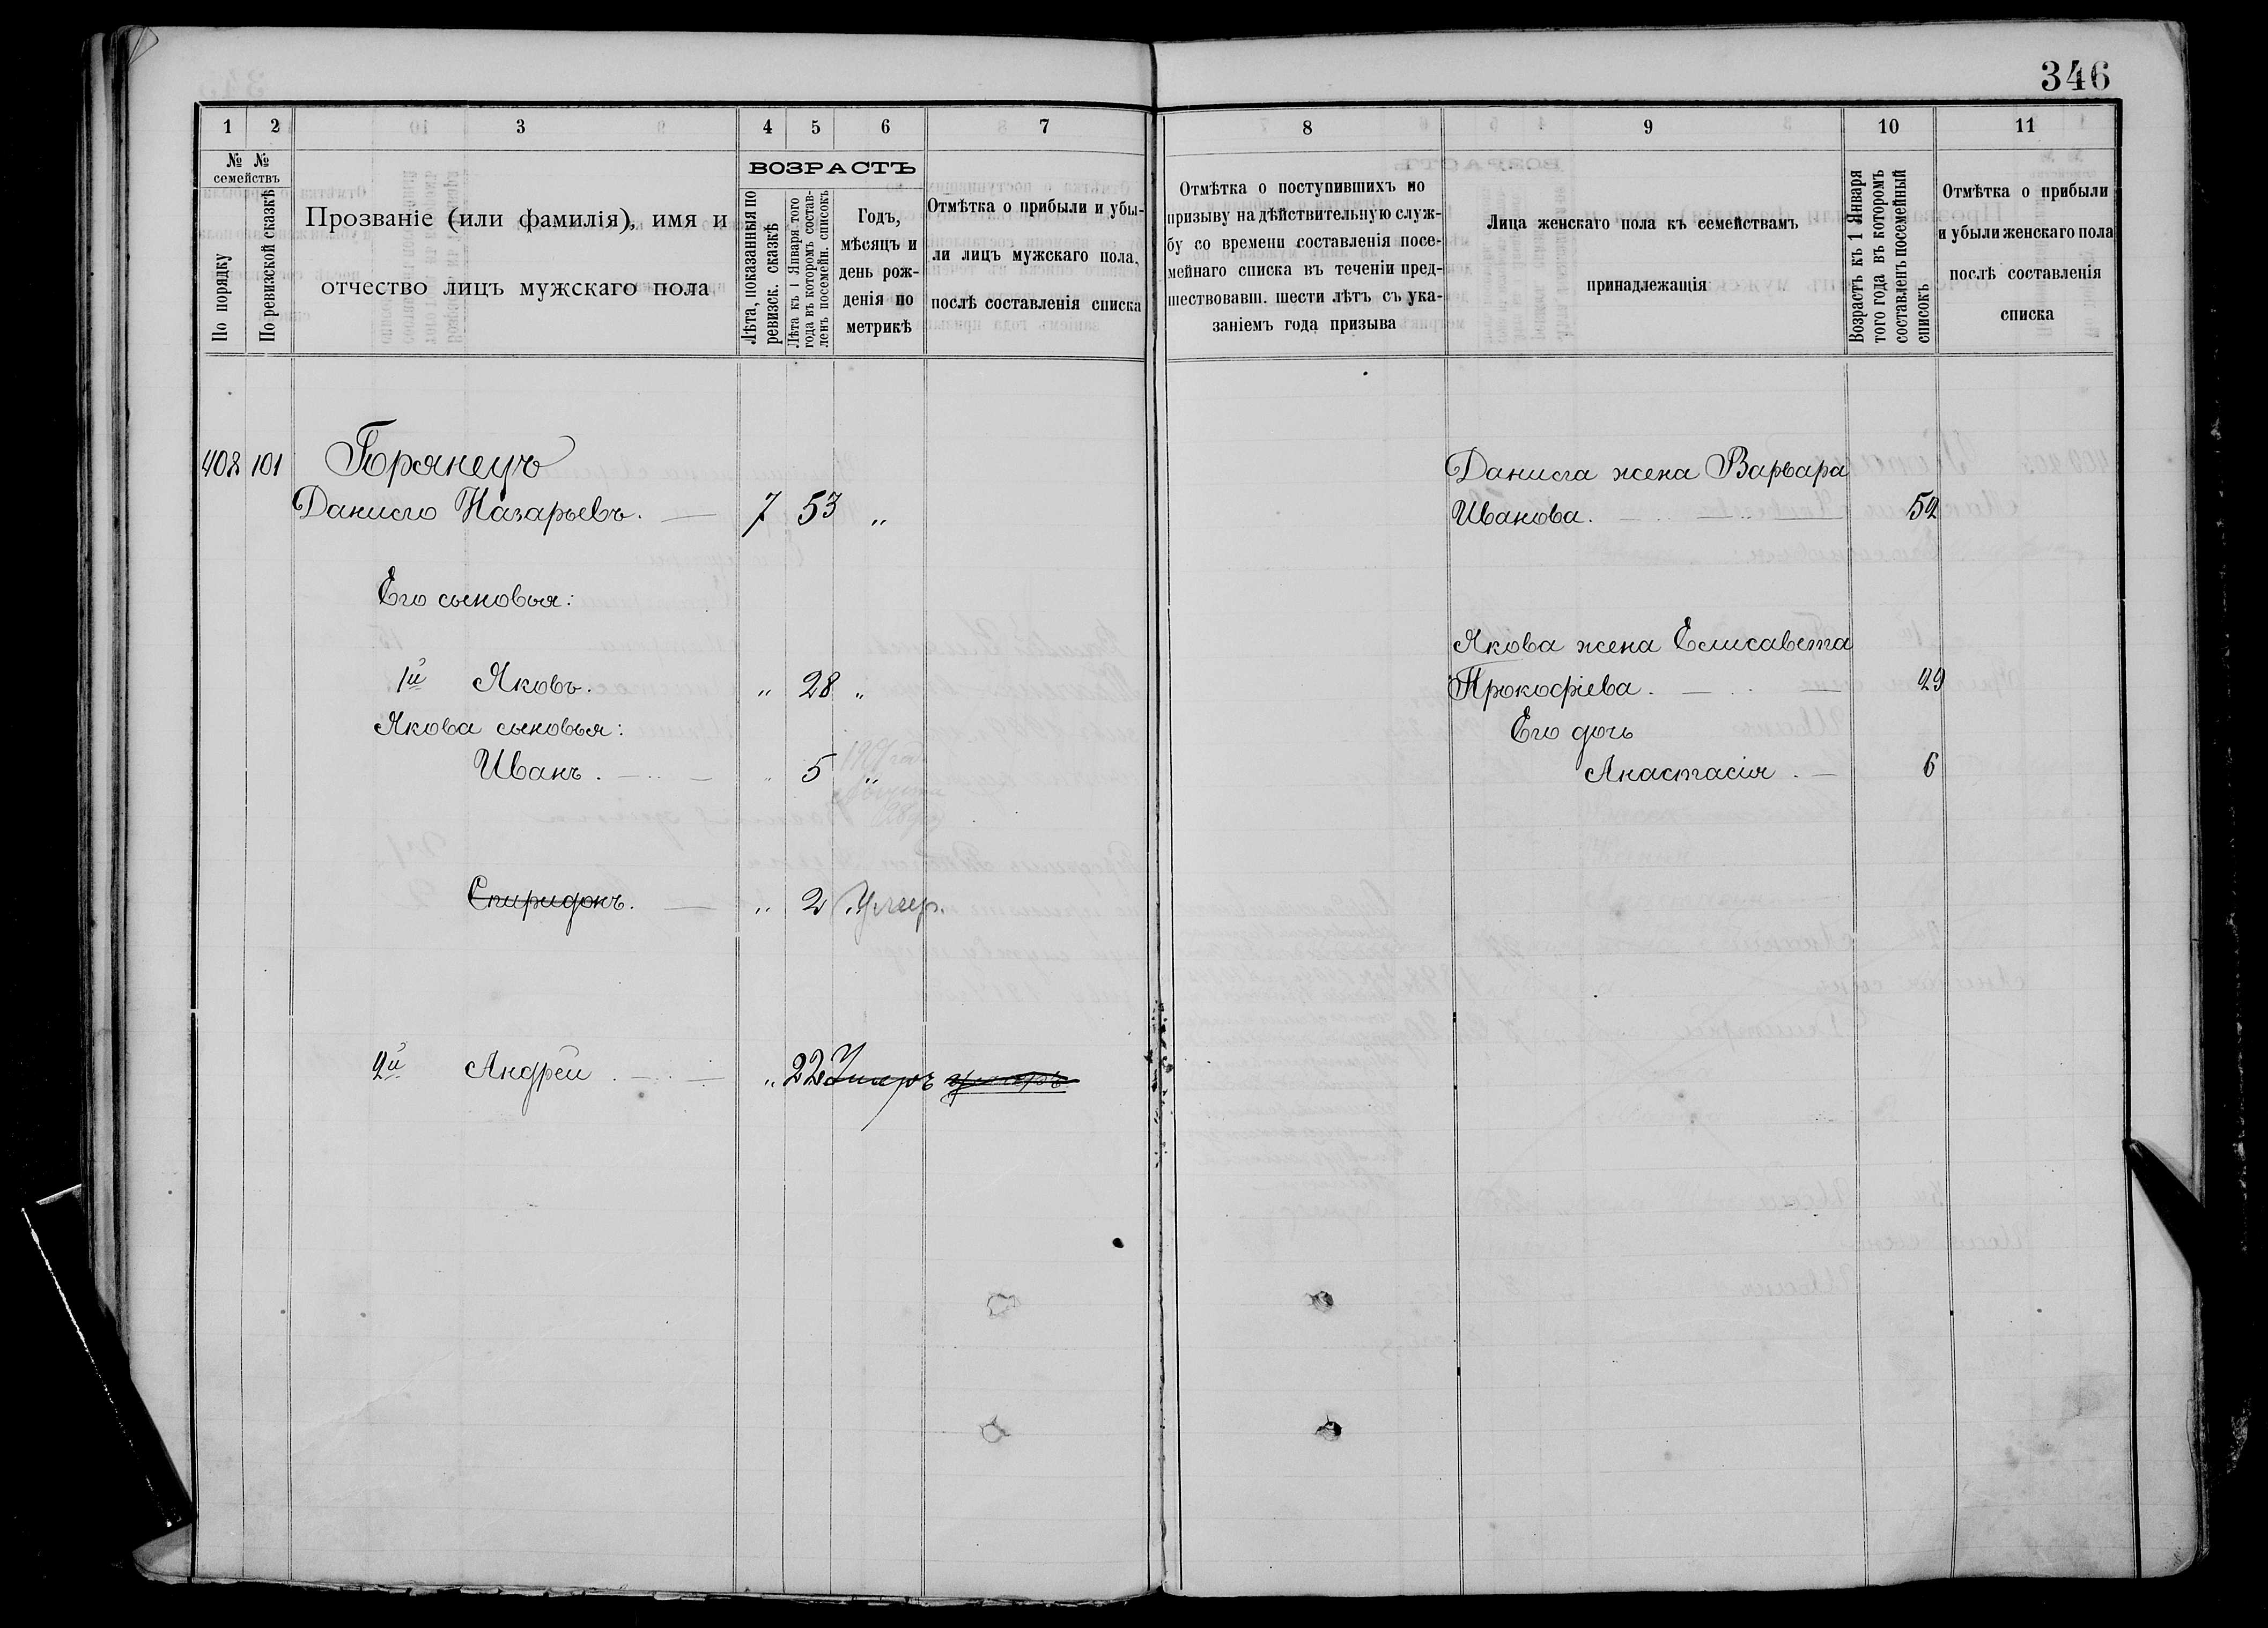 346
1 2 3 4 5 6 7 8 9 10 11
№ № семействъ
По порядку
По ревизской сказкѣ
Прозваніе (или фамилія), имя и
отчество лицъ мужскаго пола
ВОЗРАСТЪ
Лѣта, показанныя по
ревизск. сказкѣ
Лѣта къ 1 Января того
года въ которомъ состав-
ленъ посемейн. списокъ
Годъ,
мѣсяцъ и
день рож-
денія по
метрикѣ
Отмѣтка о прибыли и убы-
ли лицъ мужскаго пола,
послѣ составленія списка
Отмѣтка о поступившихъ по
призыву на дѣйствительную служ-
бу со времени составленія посе-
мейнаго списка въ теченіи пред-
шествовавш. шести лѣтъ съ ука-
заніемъ года призыва
Лица женскаго пола къ семействамъ
принадлежащія
Возрастъ къ 1 Января
того года въ которомъ
составленъ посемейный
списокъ
Отмѣтка о прибыли
и убыли женскаго пола
послѣ составленія
списка
408 101 Брянецъ
Данило Назарьевъ. — 7 53 „
Его сыновья:
1й Яковъ. „ 28 „
Якова сыновья:
Иванъ. — „ 5 „
Спиридонъ. — „ 2 Умер.
2й Андрей. — „ 22 Умеръ умеръ
Данила жена Варвара
Иванова. — 52
Якова жена Елисавета
Прокофіева. — 29
Его дочь
Анастасія. — 6